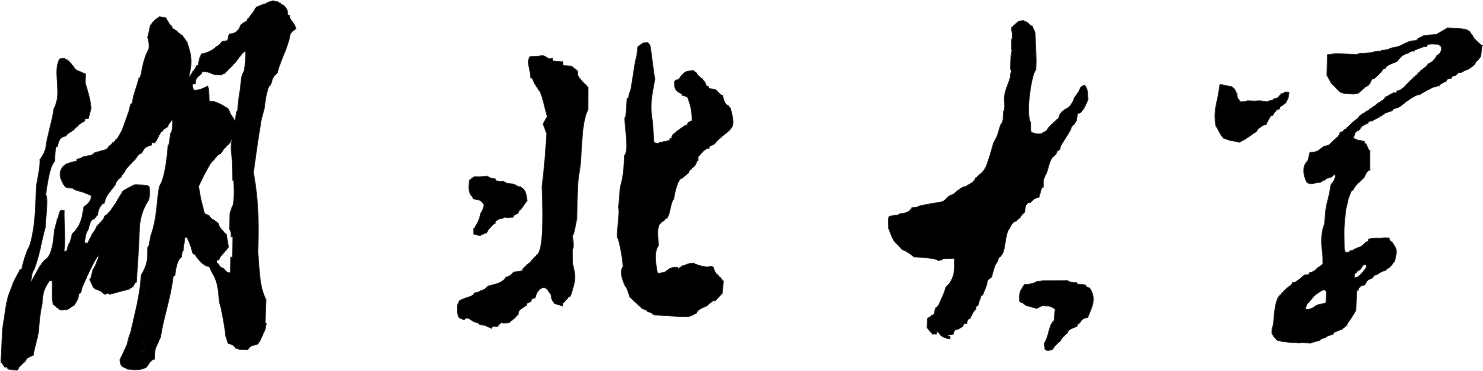 湖北大学